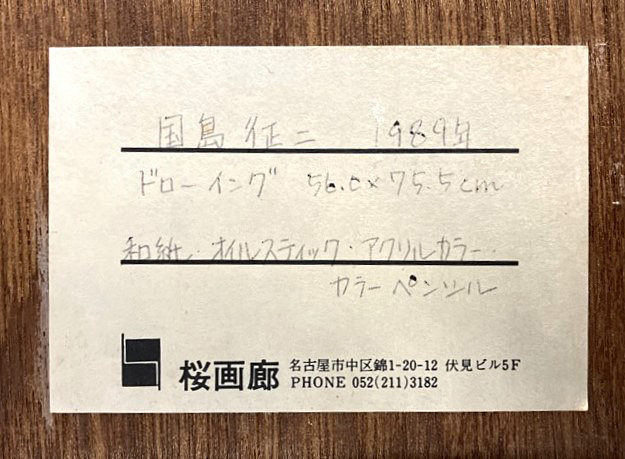 国島征二 1989年
ドローイング 56.0×75.5cm
和紙・オイルスティック・アクリルカラー・
カラーペンシル
桜画廊 名古屋市中区錦1-20-12 伏見ビル5F
PHONE 052(211)3182